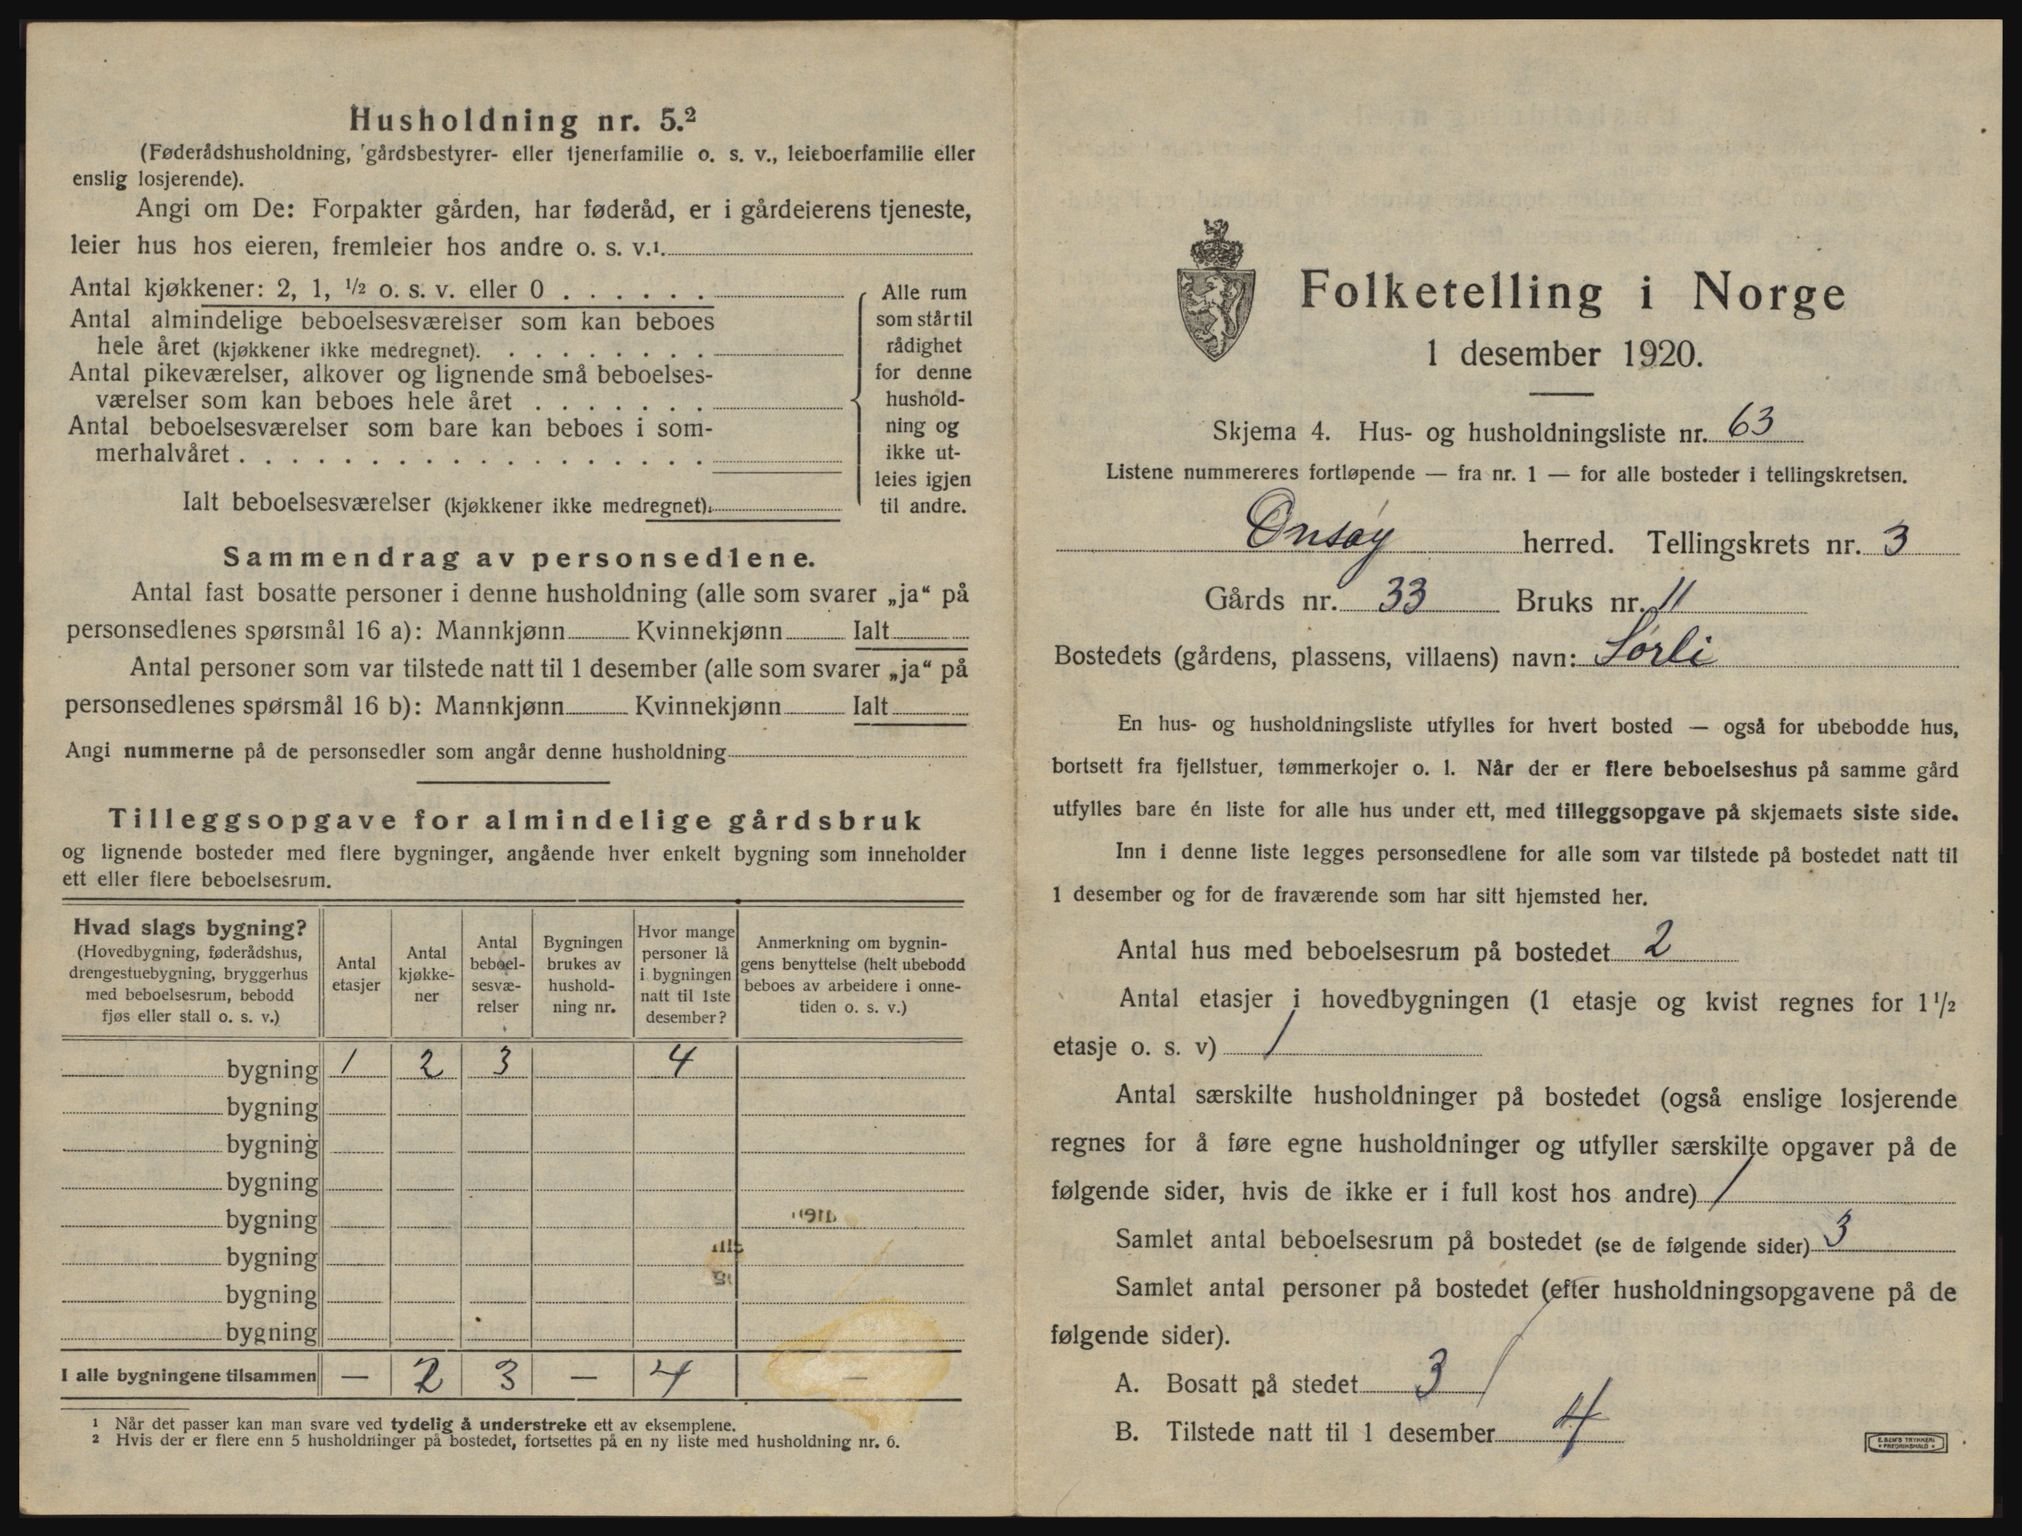 Husholdning nr. 5.²
(Føderådshusholdning, gårdsbestyrer- eller tjenerfamilie o. s. v., leieboerfamilie eller
enslig losjerende).
Angi om De: Forpakter gården, har føderåd, er i gårdeierens tjeneste,
leier hus hos eieren, fremleier hos andre o. s. v.¹.
Antal kjøkkener: 2, 1, ½ o. s. v. eller 0 . . . . . .
Antal almindelige beboelsesværelser som kan beboes
hele året (kjøkkener ikke medregnet). . . . . . . . .
Antal pikeværelser, alkover og lignende små beboelses-
værelser som kan beboes hele året . . . . . . .
Antal beboelsesværelser som bare kan beboes i som-
merhalvåret . . . . . . . . . . . . . . . . . .
Ialt beboelsesværelser (kjøkkener ikke medregnet).
Alle rum
som står til
rådighet
for denne
hushold-
ning og
ikke ut-
leies igjen
til andre.
Sammendrag av personsedlene.
Antal fast bosatte personer i denne husholdning (alle som svarer „ja“ på
personsedlenes spørsmål 16 a): Mannkjønn Kvinnekjønn Ialt
Antal personer som var tilstede natt til 1 desember (alle som svarer „ja“ på
personsedlenes spørsmål 16 b): Mannkjønn Kvinnekjønn Ialt
Angi nummerne på de personsedler som angår denne husholdning
Tilleggsopgave for almindelige gårdsbruk
og lignende bosteder med flere bygninger, angående hver enkelt bygning som inneholder
ett eller flere beboelsesrum.
Hvad slags bygning?
(Hovedbygning, føderådshus,
drengestuebygning, bryggerhus
med beboelsesrum, bebodd
fjøs eller stall o. s. v.)
Antal
etasjer
Antal
kjøkke-
ner
Antal
beboel-
sesvæ-
relser
Bygningen
brukes av
hushold-
ning nr.
Hvor mange
personer lå
i bygningen
natt til 1ste
desember?
Anmerkning om bygnin-
gens benyttelse (helt ubebodd
beboes av arbeidere i onne-
tiden o. s. v.)
bygning 1 2 3 4
bygning
bygning
bygning
bygning
bygning
bygning
bygning
I alle bygningene tilsammen — 2 3 — 4 —
¹ Når det passer kan man svare ved tydelig å understreke ett av eksemplene.
² Hvis der er flere enn 5 husholdninger på bostedet, fortsettes på en ny liste med husholdning nr. 6.
Folketelling i Norge
1 desember 1920.
Skjema 4. Hus- og husholdningsliste nr. 63
Listene nummereres fortløpende — fra nr. 1 — for alle bosteder i tellingskretsen.
Onsøy herred. Tellingskrets nr. 3
Gårds nr. 33 Bruks nr. 11
Bostedets (gårdens, plassens, villaens) navn: Sørli
En hus- og husholdningsliste utfylles for hvert bosted — også for ubebodde hus,
bortsett fra fjellstuer, tømmerkojer o. l. Når der er flere beboelseshus på samme gård
utfylles bare én liste for alle hus under ett, med tilleggsopgave på skjemaets siste side.
Inn i denne liste legges personsedlene for alle som var tilstede på bostedet natt til
1 desember og for de fraværende som har sitt hjemsted her.
Antal hus med beboelsesrum på bostedet 2
Antal etasjer i hovedbygningen (1 etasje og kvist regnes for 1½
etasje o. s. v) 1
Antal særskilte husholdninger på bostedet (også enslige losjerende
regnes for å føre egne husholdninger og utfyller særskilte opgaver på de
følgende sider, hvis de ikke er i full kost hos andre) 1
Samlet antal beboelsesrum på bostedet (se de følgende sider) 3
Samlet antal personer på bostedet (efter husholdningsopgavene på de
følgende sider).
A. Bosatt på stedet 3
B. Tilstede natt til 1 desember 4
E. SEM'S TRYKKERI
• FREDRIKSHALD •